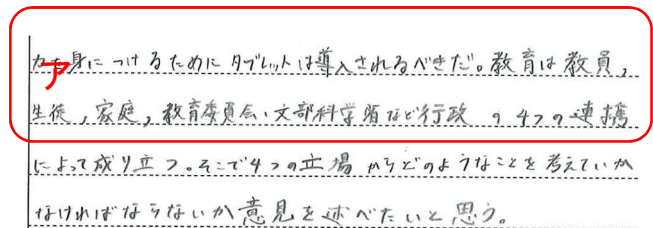 力を身につけるためにタブレットは導入されるべきだ。教育は教員,
ア
生徒,家庭,教育委員会・文部科学省など行政 の4つの連携
によって成り立つ。そこで4つの立場からどのようなことを考えていか
なければならないか意見を述べたいと思う。